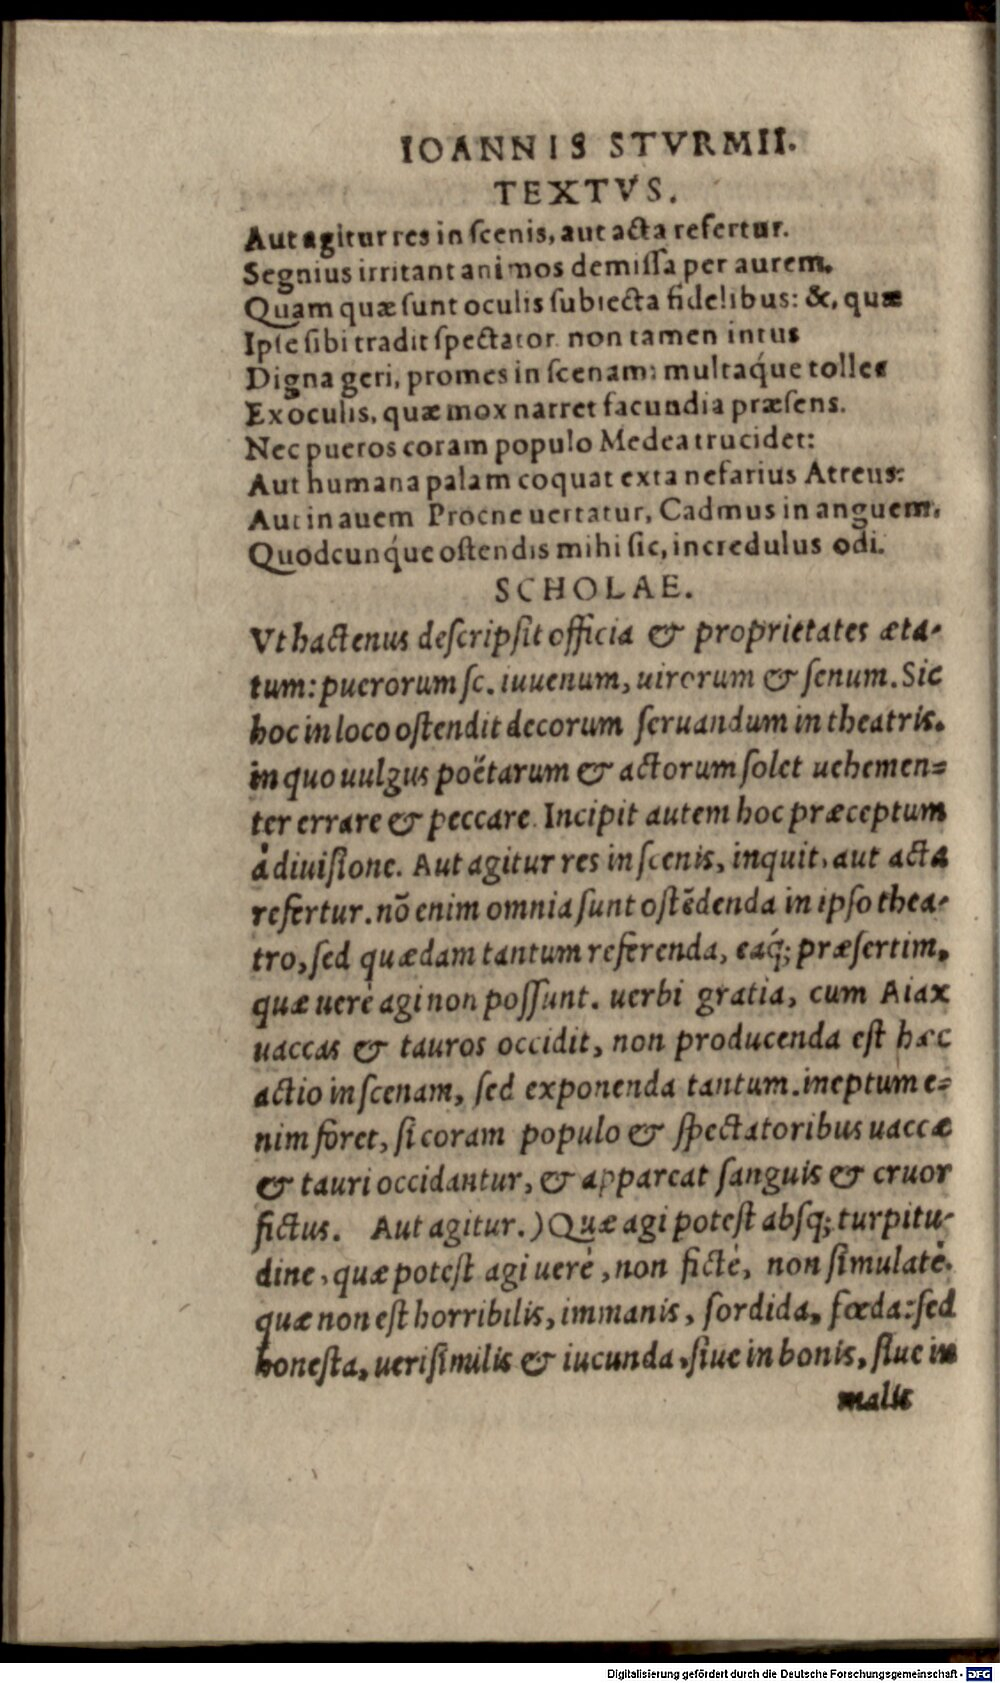 IOANNIS STVRMII.
TEXTVS.
Aut agitur res in ſcenis, aut acta refertur.
Segnius irritant animos demiſſa per aurem.
Quam quæ ſunt oculis ſubiecta fidelibus: &, quæ
Ipſe ſibi tradit ſpectator non tamen intus
Digna geri, promes in ſcenam: multaq́ue tolles
Ex oculis, quæ mox narret facundia præſens.
Nec pueros coram populo Medea trucidet:
Aut humana palam coquat exta nefarius Atreus:
Aut in auem Procne uertatur, Cadmus in anguem.
Quodcunq́ue oſtendis mihi ſic, incredulus odi.
SCHOLAE.
Vt hactenus deſcripſit officia & proprietates æta-
tum: puerorum ſc. iuuenum, uirorum & ſenum. Sic
hoc in loco oſtendit decorum ſeruandum in theatris.
in quo uulgus poëtarum & actorum ſolet uehemen=
ter errare & peccare. Incipit autem hoc præceptum
à diuiſione. Aut agitur res in ſcenis, inquit, aut acta
refertur. nõ enim omnia ſunt oſtẽdenda in ipſo thea-
tro, ſed quædam tantum referenda, eaq́; præſertim,
quæ uerè agi non poſſunt. uerbi gratia, cum Aiax
uaccas & tauros occidit, non producenda eſt hæc
actio in ſcenam, ſed exponenda tantum. ineptum e=
nim foret, ſi coram populo & ſpectatoribus uaccæ
& tauri occidantur, & appareat ſanguis & cruor
fictus. Aut agitur.) Quæ agi poteſt abſq; turpitu-
dine, quæ poteſt agi uerè, non fictè, non ſimulatè.
quæ non eſt horribilis, immanis, ſordida, fœda: ſed
honeſta, ueriſimilis & iucunda, ſiue in bonis, ſiue in
malis
Digitalisierung gefördert durch die Deutsche Forschungsgemeinschaft - DFG